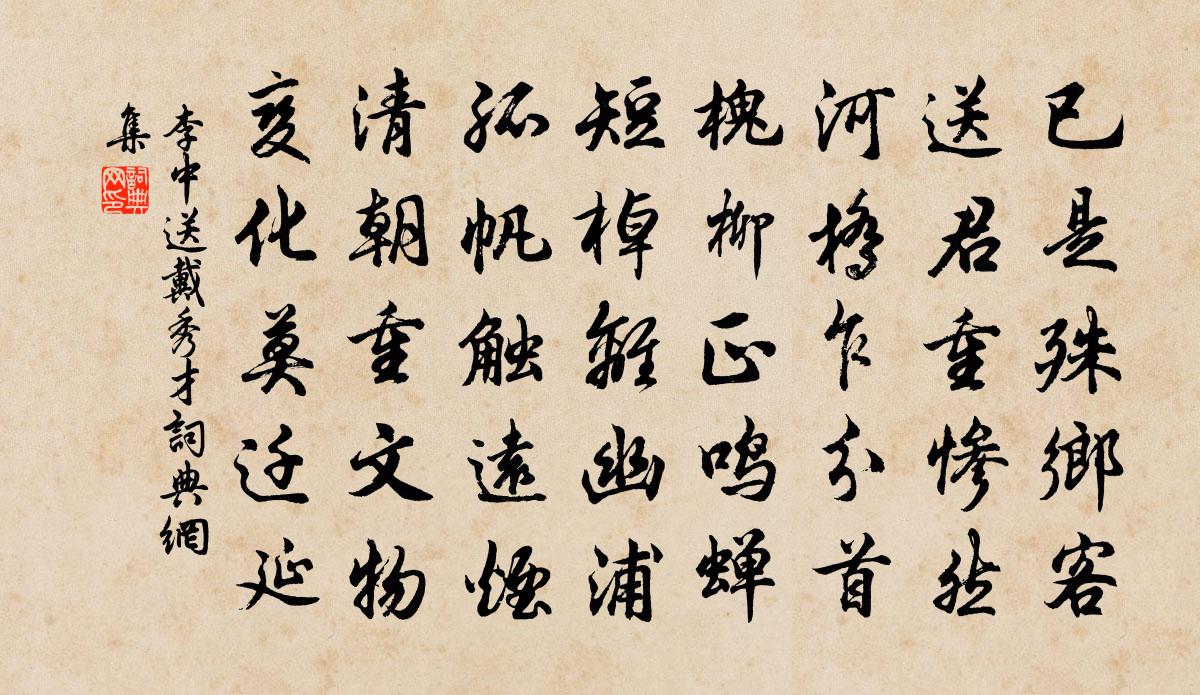 已是殊鄉客
送君重慘然
河橋乍分首
槐柳正鳴蝉
短棹離幽浦
孤帆触遠煙
清朝重文物
変化莫迁延
李中送戴秀才詞典網
集
詞典
网印